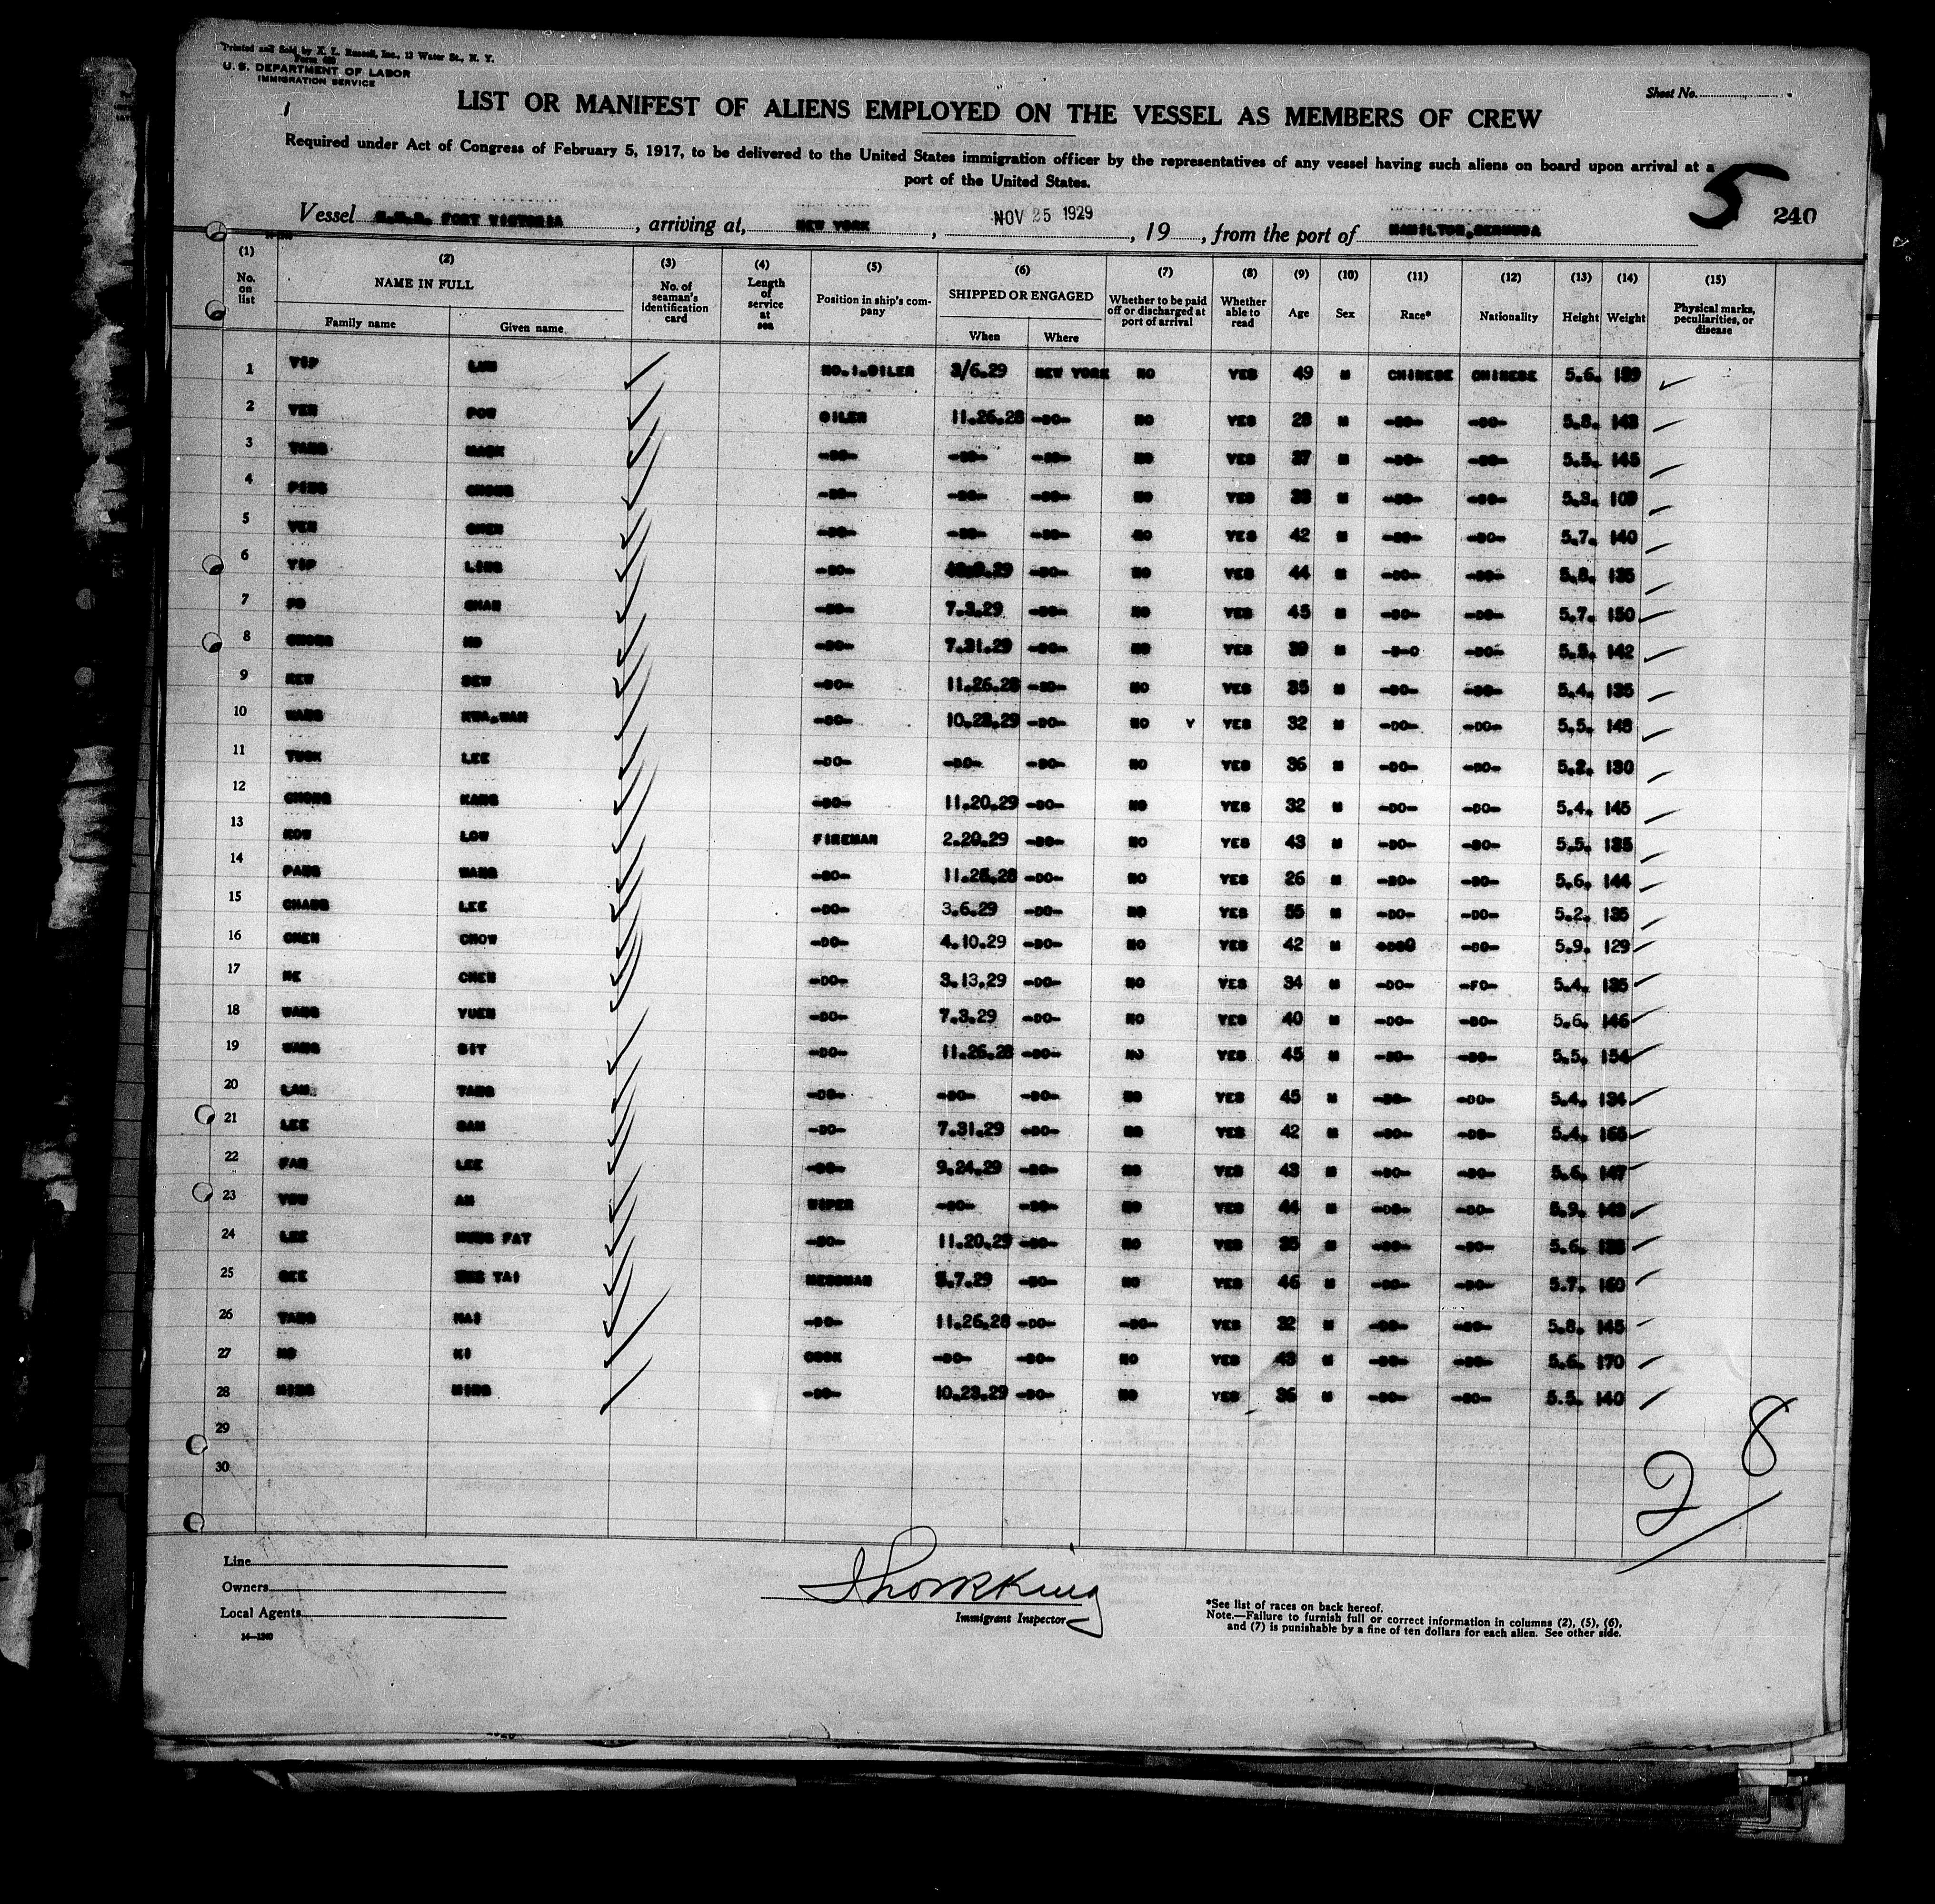 Printed and Sold by X. L. Russell, Inc., 13 Water St., N. Y.
U. S. DEPARTMENT OF LABOR
IMMIGRATION SERVICE
Sheet No.
1
LIST OR MANIFEST OF ALIENS EMPLOYED ON THE VESSEL AS MEMBERS OF CREW
Required under Act of Congress of February 5, 1917, to be delivered to the United States immigration officer by the representatives of any vessel having such aliens on board upon arrival at a
port of the United States.
5 240
Vessel FORT VICTORIA, arriving at, NEW YORK, NOV 25 1929, 19, from the port of HAMILTON, BERMUDA
(1) (2) (3) (4) (5) (6) (7) (8) (9) (10) (11) (12) (13) (14) (15)
No. on list NAME IN FULL Family name Given name No. of seaman's identification card Length of service at sea Position in ship's company SHIPPED OR ENGAGED When Where Whether to be paid off or discharged at port of arrival Whether able to read Age Sex Race* Nationality Height Weight Physical marks, peculiarities, or disease
1 YIP LAM NO.1.OILER 3/6.29 NEW YORK NO YES 49 M CHINESE CHINESE 5.6.
2 YEN POW OILER 11.26.28 -DO- NO YES 28 M -DO- -DO- 5.8. 143
3 TANG MACK -DO- -DO- -DO- NO YES 37 M -DO- -DO- 5.5. 145
4 PING CHONG -DO- -DO- -DO- NO YES M -DO- -DO- 5.3. 109
5 YEN CHEN -DO- -DO- -DO- NO YES 42 M -DO- -DO- 5.7. 140
6 YIP LING -DO- -DO- NO YES 44 M -DO- -DO- 5.8. 135
7 CHAN -DO- 7.3.29 -DO- NO YES 45 M -DO- -DO- 5.7. 150
8 CHONG -DO- 7.31.29 -DO- NO YES 39 M -D-O -DO- 5.5. 142
9 SEW -DO- 11.26.28 -DO- NO YES 35 M -DO- -DO- 5.4. 135
10 WANG -DO- 10.23.29 -DO- NO Y YES 32 M -DO- -DO- 5.5. 148
11 TUCK LEE -DO- -DO- -DO- NO YES 36 M -DO- -DO- 5.2. 130
12 CHONG KANG -DO- 11.20.29 -DO- NO YES 32 M -DO- -DO- 5.4. 145
13 KOW LOW FIREMAN 2.20.29 -DO- NO YES 43 M -DO- -DO- 5.5. 135
14 PANG WANG -DO- 11.26.28 -DO- NO YES 26 M -DO- -DO- 5.6. 144
15 CHANG LEE -DO- 3.6.29 -DO- NO YES 55 M -DO- -DO- 5.2. 135
16 CHEN CHOW -DO- 4.10.29 -DO- NO YES 42 M -DO- 5.9. 129
17 NE CHEN -DO- 3.13.29 -DO- NO YES 34 M -DO- -FO- 5.4. 135
18 WANG YUEN -DO- 7.3.29 -DO- NO YES 40 M -DO- -DO- 5.6. 146
19 WANG SIT -DO- 11.26.28 -DO- NO YES 45 M -DO- -DO- 5.5. 154
20 LAM TANG -DO- -DO- -DO- NO YES 45 M -DO- -DO- 5.4. 134
21 LEE SAM -DO- 7.31.29 -DO- NO YES 42 M -DO- -DO- 5.4. 165
22 LEE -DO- 9.24.29 -DO- NO YES 43 M -DO- -DO- 5.6. 147
23 YOW AH WIPER -DO- -DO- NO YES 44 M -DO- -DO- 5.9.
24 LEE FAT -DO- 11.20.29 -DO- NO YES 35 M -DO- -DO- 5.6.
25 GEE TAI MESSMAN 5.7.29 -DO- NO YES 46 M -DO- -DO- 5.7. 160
26 TANG HAI -DO- 11.26.28 -DO- -DO- YES 32 M -DO- -DO- 5.8. 145
27 HO KI COOK -DO- -DO- NO YES 43 M -DO- -DO- 5.6. 170
28 -DO- 10.23.29 -DO- NO YES 36 M -DO- -DO- 5.5. 140
29
30
28
Line
Owners
Local Agents
14—1240
Immigrant Inspector
*See list of races on back hereof.
Note.—Failure to furnish full or correct information in columns (2), (5), (6),
and (7) is punishable by a fine of ten dollars for each alien. See other side.